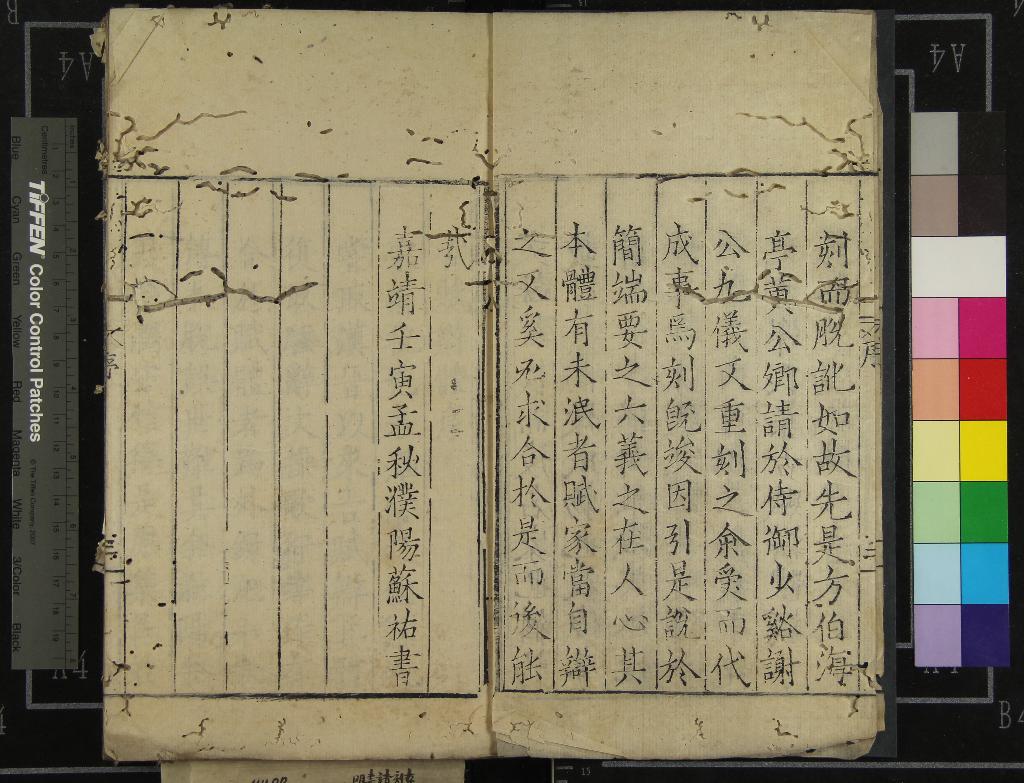 刻而脫訛如故先是方伯海
亭黃公鄉請於侍御少谿謝
公九儀又重刻之余受而代
成事焉刻既竣因引是說於
簡端要之六義之在人心其
本體有未泯者賦家當自辯
之又奚必求合於是而後能
哉
嘉靖壬寅孟秋濮陽蘇祐書
TIFFEN Color Control Patches
© The Tiffen Company, 2007
Centimetres
Inches
Blue
Cyan
Green
Yellow
Red
Magenta
White
3/Color
Black
A4
A4